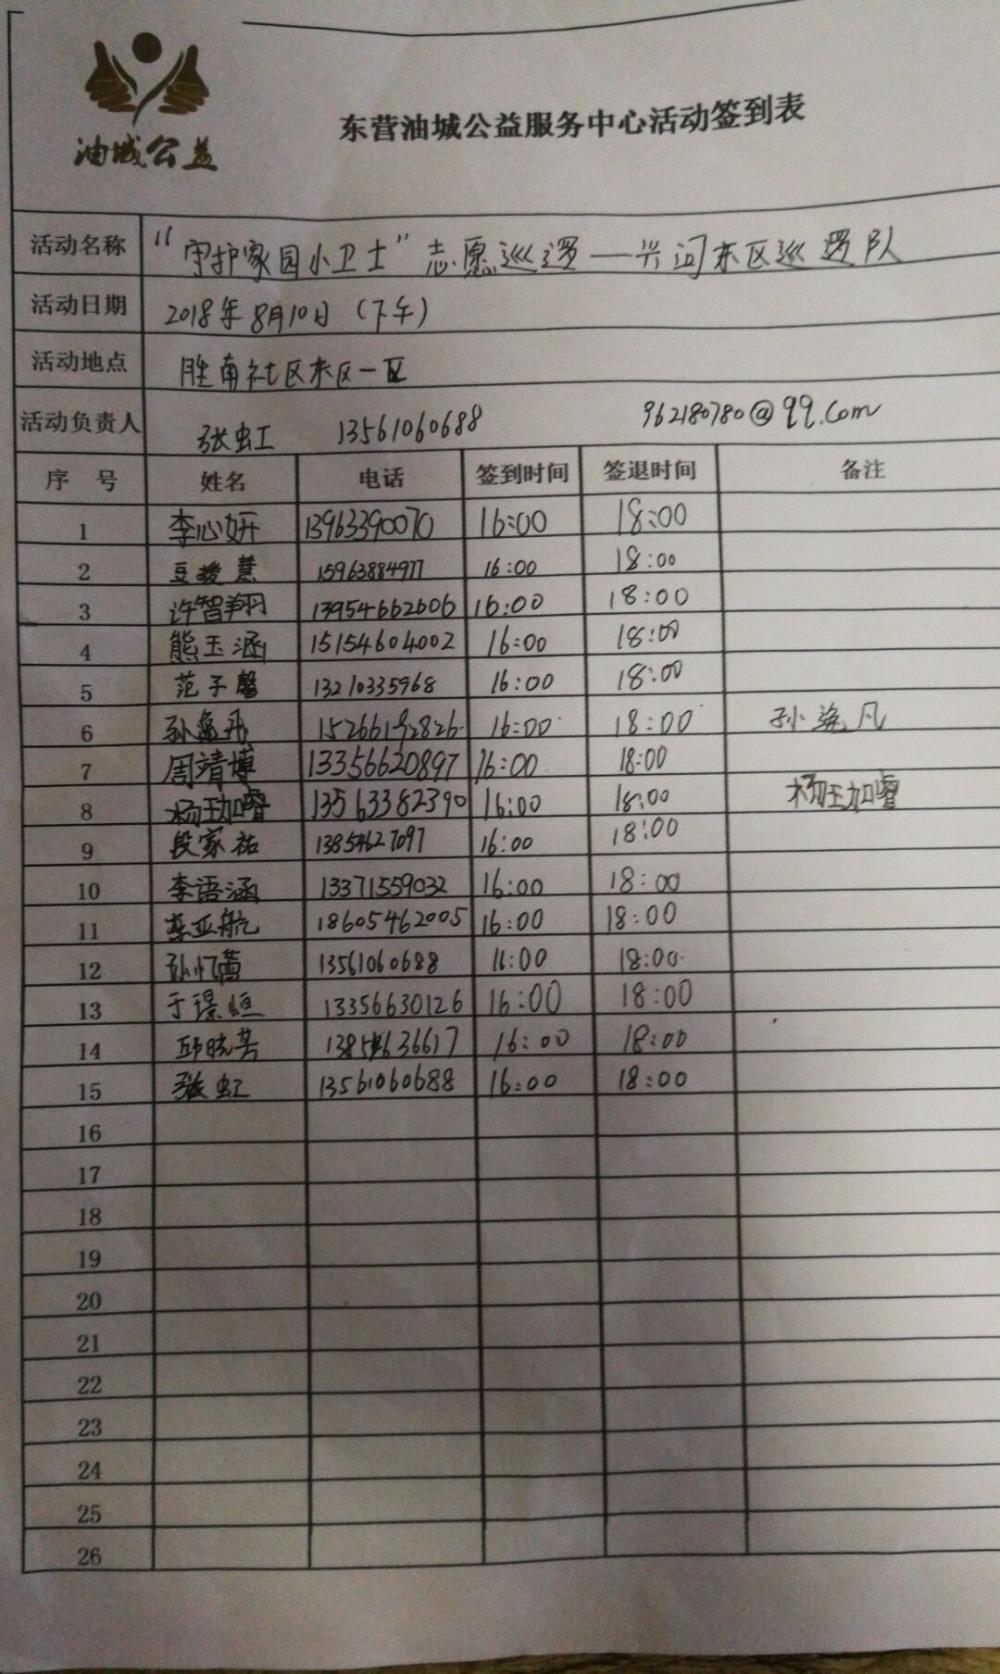 油城公益
东营油城公益服务中心活动签到表
活动名称 “守护家园小卫士”志愿巡逻——兴河东区巡逻队
活动日期 2018年8月10日（下午）
活动地点 胜南社区东区一区
活动负责人 张虹 13561060688 962180780@qq.com
序号 姓名 电话 签到时间 签退时间 备注
1 李心妍 13963390070 16:00 18:00
2 15963884977 16:00 18:00
3 许智翔 13954662606 16:00 18:00
4 熊玉涵 15154604002 16:00 18:00
5 范子馨 13210335968 16:00 18:00
6 孙逸凡 15266192826 16:00 18:00 孙逸凡
7 周靖博 13356620897 16:00 18:00
8 杨珈睿 13563382390 16:00 18:00 杨珈睿
9 段家祐 13854627097 16:00 18:00
10 李语涵 13371559032 16:00 18:00
11 李亚航 18605462005 16:00 18:00
12 13561060688 16:00 18:00
13 于璟恒 13356630126 16:00 18:00
14 邱晓芳 16:00 18:00
15 张虹 13561060688 16:00 18:00
16
17
18
19
20
21
22
23
24
25
26